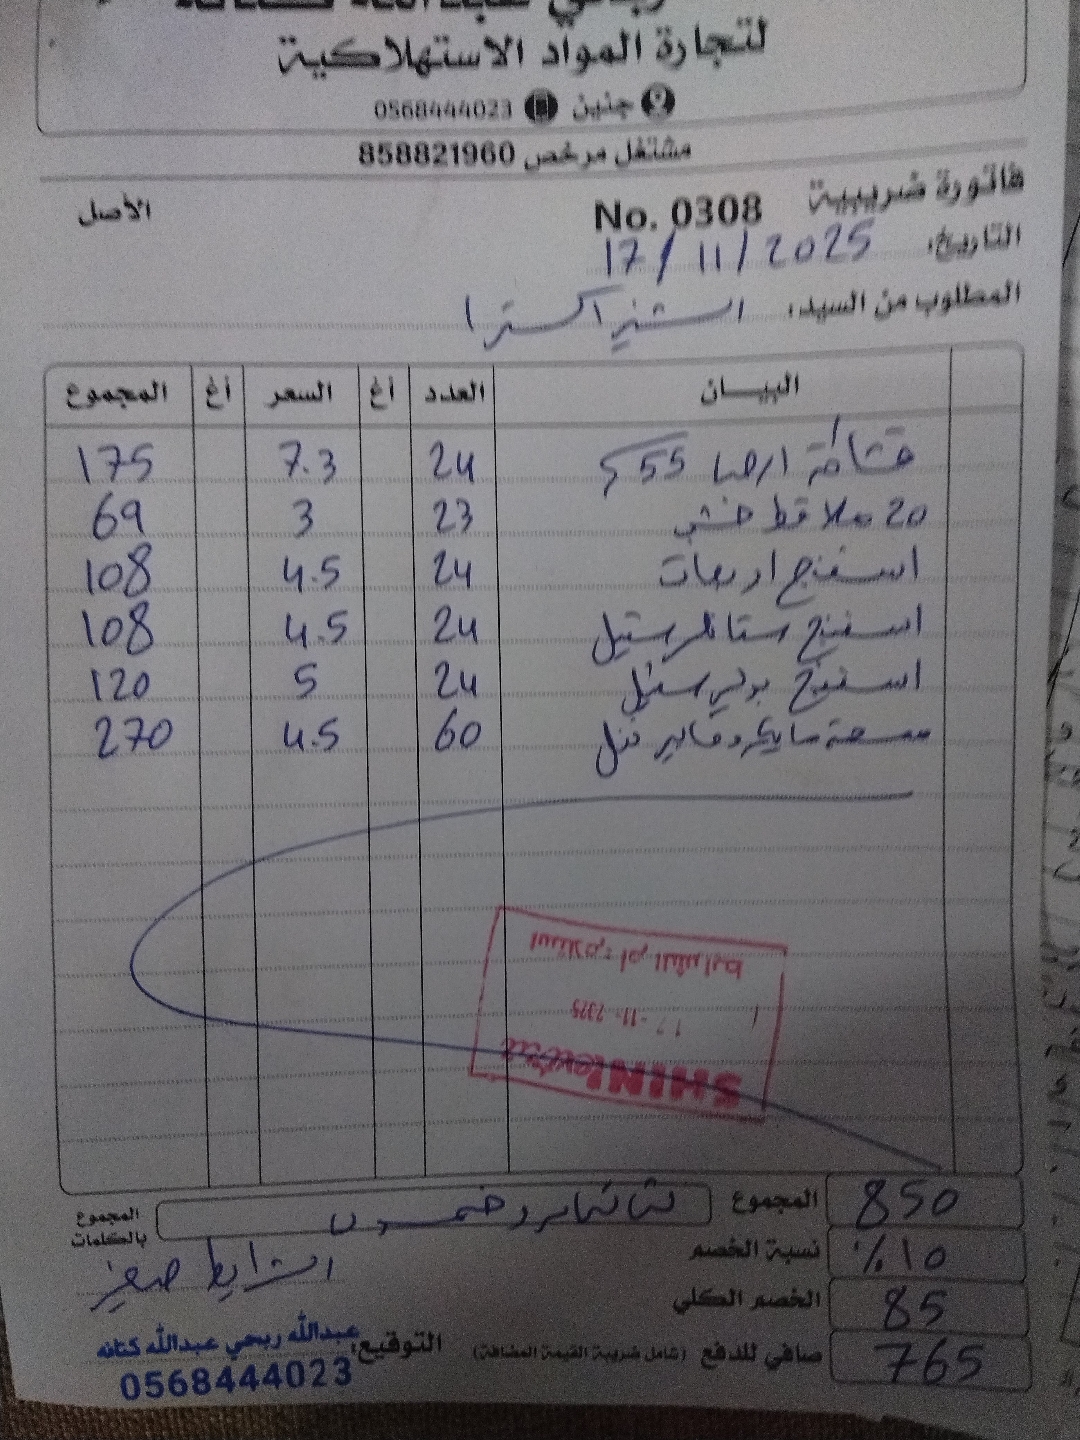 ربحي عبدالله كتانة
لتجارة المواد الاستهلاكية
جنين 0568444023
مشتغل مرخص 858821960
فاتورة ضريبية No. 0308 الأصل
التاريخ: 17/11/2025
المطلوب من السيد: الشني اكسترا
البيان العدد أغ السعر أغ المجموع
قشاطة ارض 55 24 7.3 175
20 ملاقط خشب 23 3 69
اسفنج اربعات 24 4.5 108
اسفنج ستانلس ستيل 24 4.5 108
اسفنج بولي ستيل 24 5 120
ممسحة مايكروفايبر 60 4.5 270
استلام: ام الشرايط
17-11-2025
SHINI extra
المجموع 850
المجموع بالكلمات ثمانمائة وخمسون
نسبة الخصم 10%
الخصم الكلي 85
صافي للدفع (شامل ضريبة القيمة المضافة) 765
التوقيع:
عبدالله ربحي عبدالله كتانه
0568444023